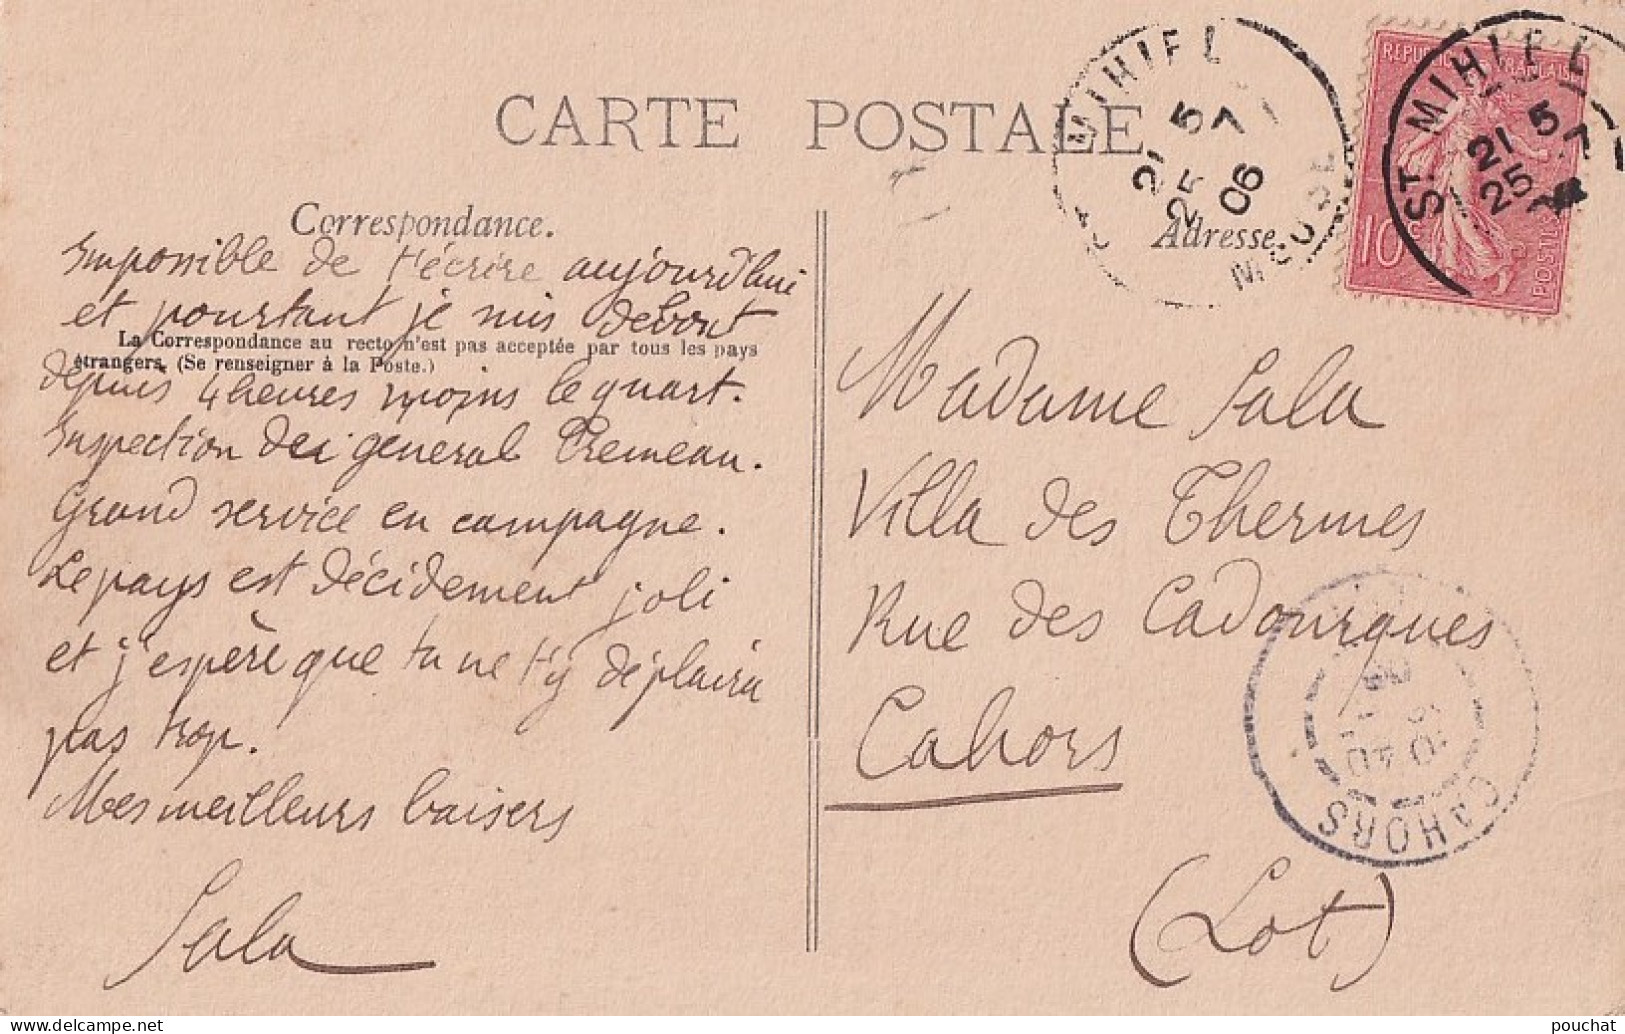 CARTE POSTALE
Correspondance.
Impossible de t'écrire aujourd'hui
et pourtant je suis debout
La Correspondance au recto n'est pas acceptée par tous les pays
étrangers. (Se renseigner à la Poste.)
depuis 4 heures moins le quart.
Inspection du général Cremeau.
Grand service en campagne.
Le pays est décidement joli
et j'espère que tu ne t'y déplaira
pas trop.
Mes meilleurs baisers
Sala
MIHIEL
21 5
25 7
06
MEUSE
REPUBLIQUE FRANCAISE
10c
POSTES
ST MIHIEL
21 5
25 7
Adresse
Madame Sala
Villa des Thermes
Rue des Cadourques
Cahors
(Lot)
CAHORS
pouchat